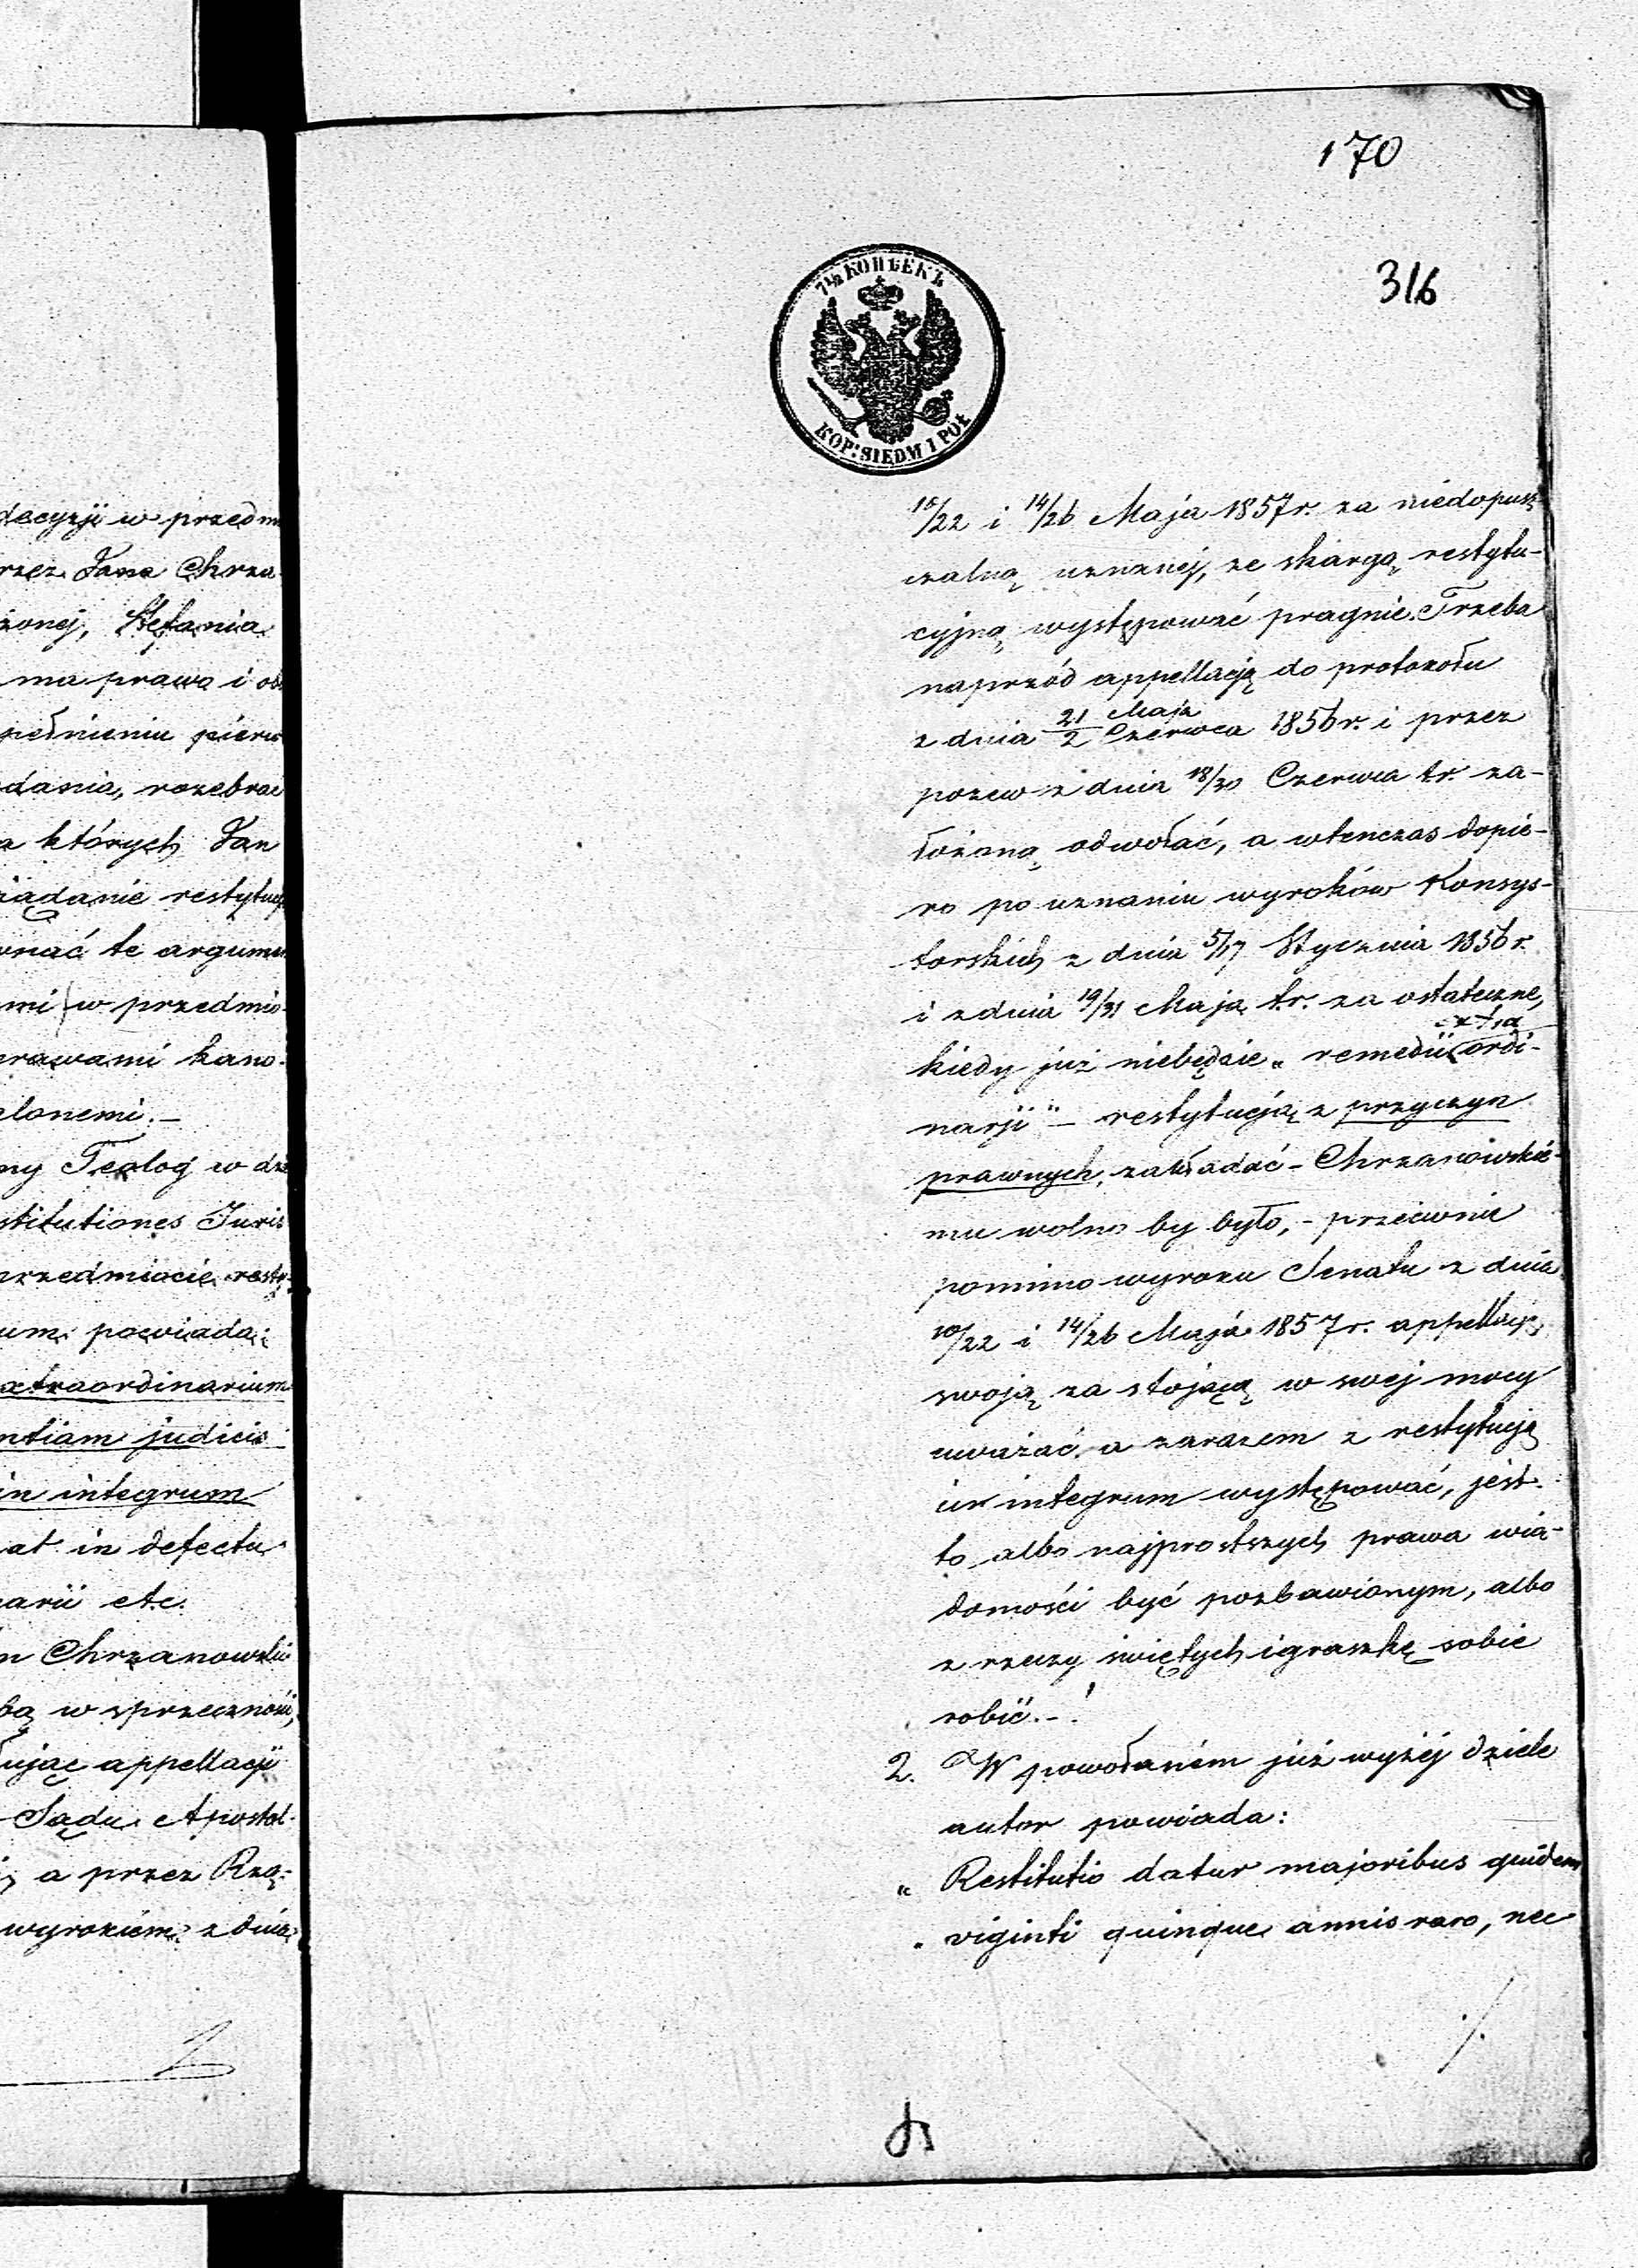 decyzji w przedm
rzez Jana Chrza
żonej, Stefania
ma prawo i ob
pełnieniu pierw
dania, rozebrać
a których Jan
żądanie restytucyi
wnać te argumen
mi w przedmio-
prawami kano-
elonemi.-
ny Teolog w dzi
stitutiones Juris
przedmiocie resty-
um powiada:
extraordinarium
ntiam judicis
in integrum
at in defectu
narii etc.
n Chrzanowski
bą w sprzeczności,
ując appellacji
Sądu Apostol-
, a przez Rzą-
wyrokiem z dnia
170
316
7½ КОПѢЕКЪ
KOP: SIEDM I PÓŁ
10/22 i 14/26 Maja 1857 r. za niedopusz-
czalną uznanej, ze skargą restytu-
cyjną występować pragnie. Trzeba
naprzód appellacją do protokołu
z dnia 21 Maja / 2 Czerwca 1856 r. i przez
pozew z dnia 18/30 Czerwca t.r. za-
łożoną odwołać, a wtenczas dopie-
ro po uznaniu wyroków Konsys-
torskich z dnia 5/17 Stycznia 1856 r.
i z dnia 19/31 Maja t.r. za ostateczne,
kiedy już niebędzie „remedii extraordi-
narji" - restytucją z przyczyn
prawnych, zakładać - Chrzanowskie-
mu wolno by było, - przeciwnie
pomimo wyroku Senatu z dnia
10/22 i 14/26 Maja 1857 r. appellację
swoją za stojącą w swej mocy
uważać, a zarazem z restytucją
in integrum występować, jest
to albo najprostszych prawa wia-
domości być pozbawionym, albo
z rzeczy świętych igraszkę sobie
robić.-!
2. W powołaném już wyżéj dziele
autor powiada:
„Restitutio datur majoribus quidem
„viginti quinque annis raro, nec
./.